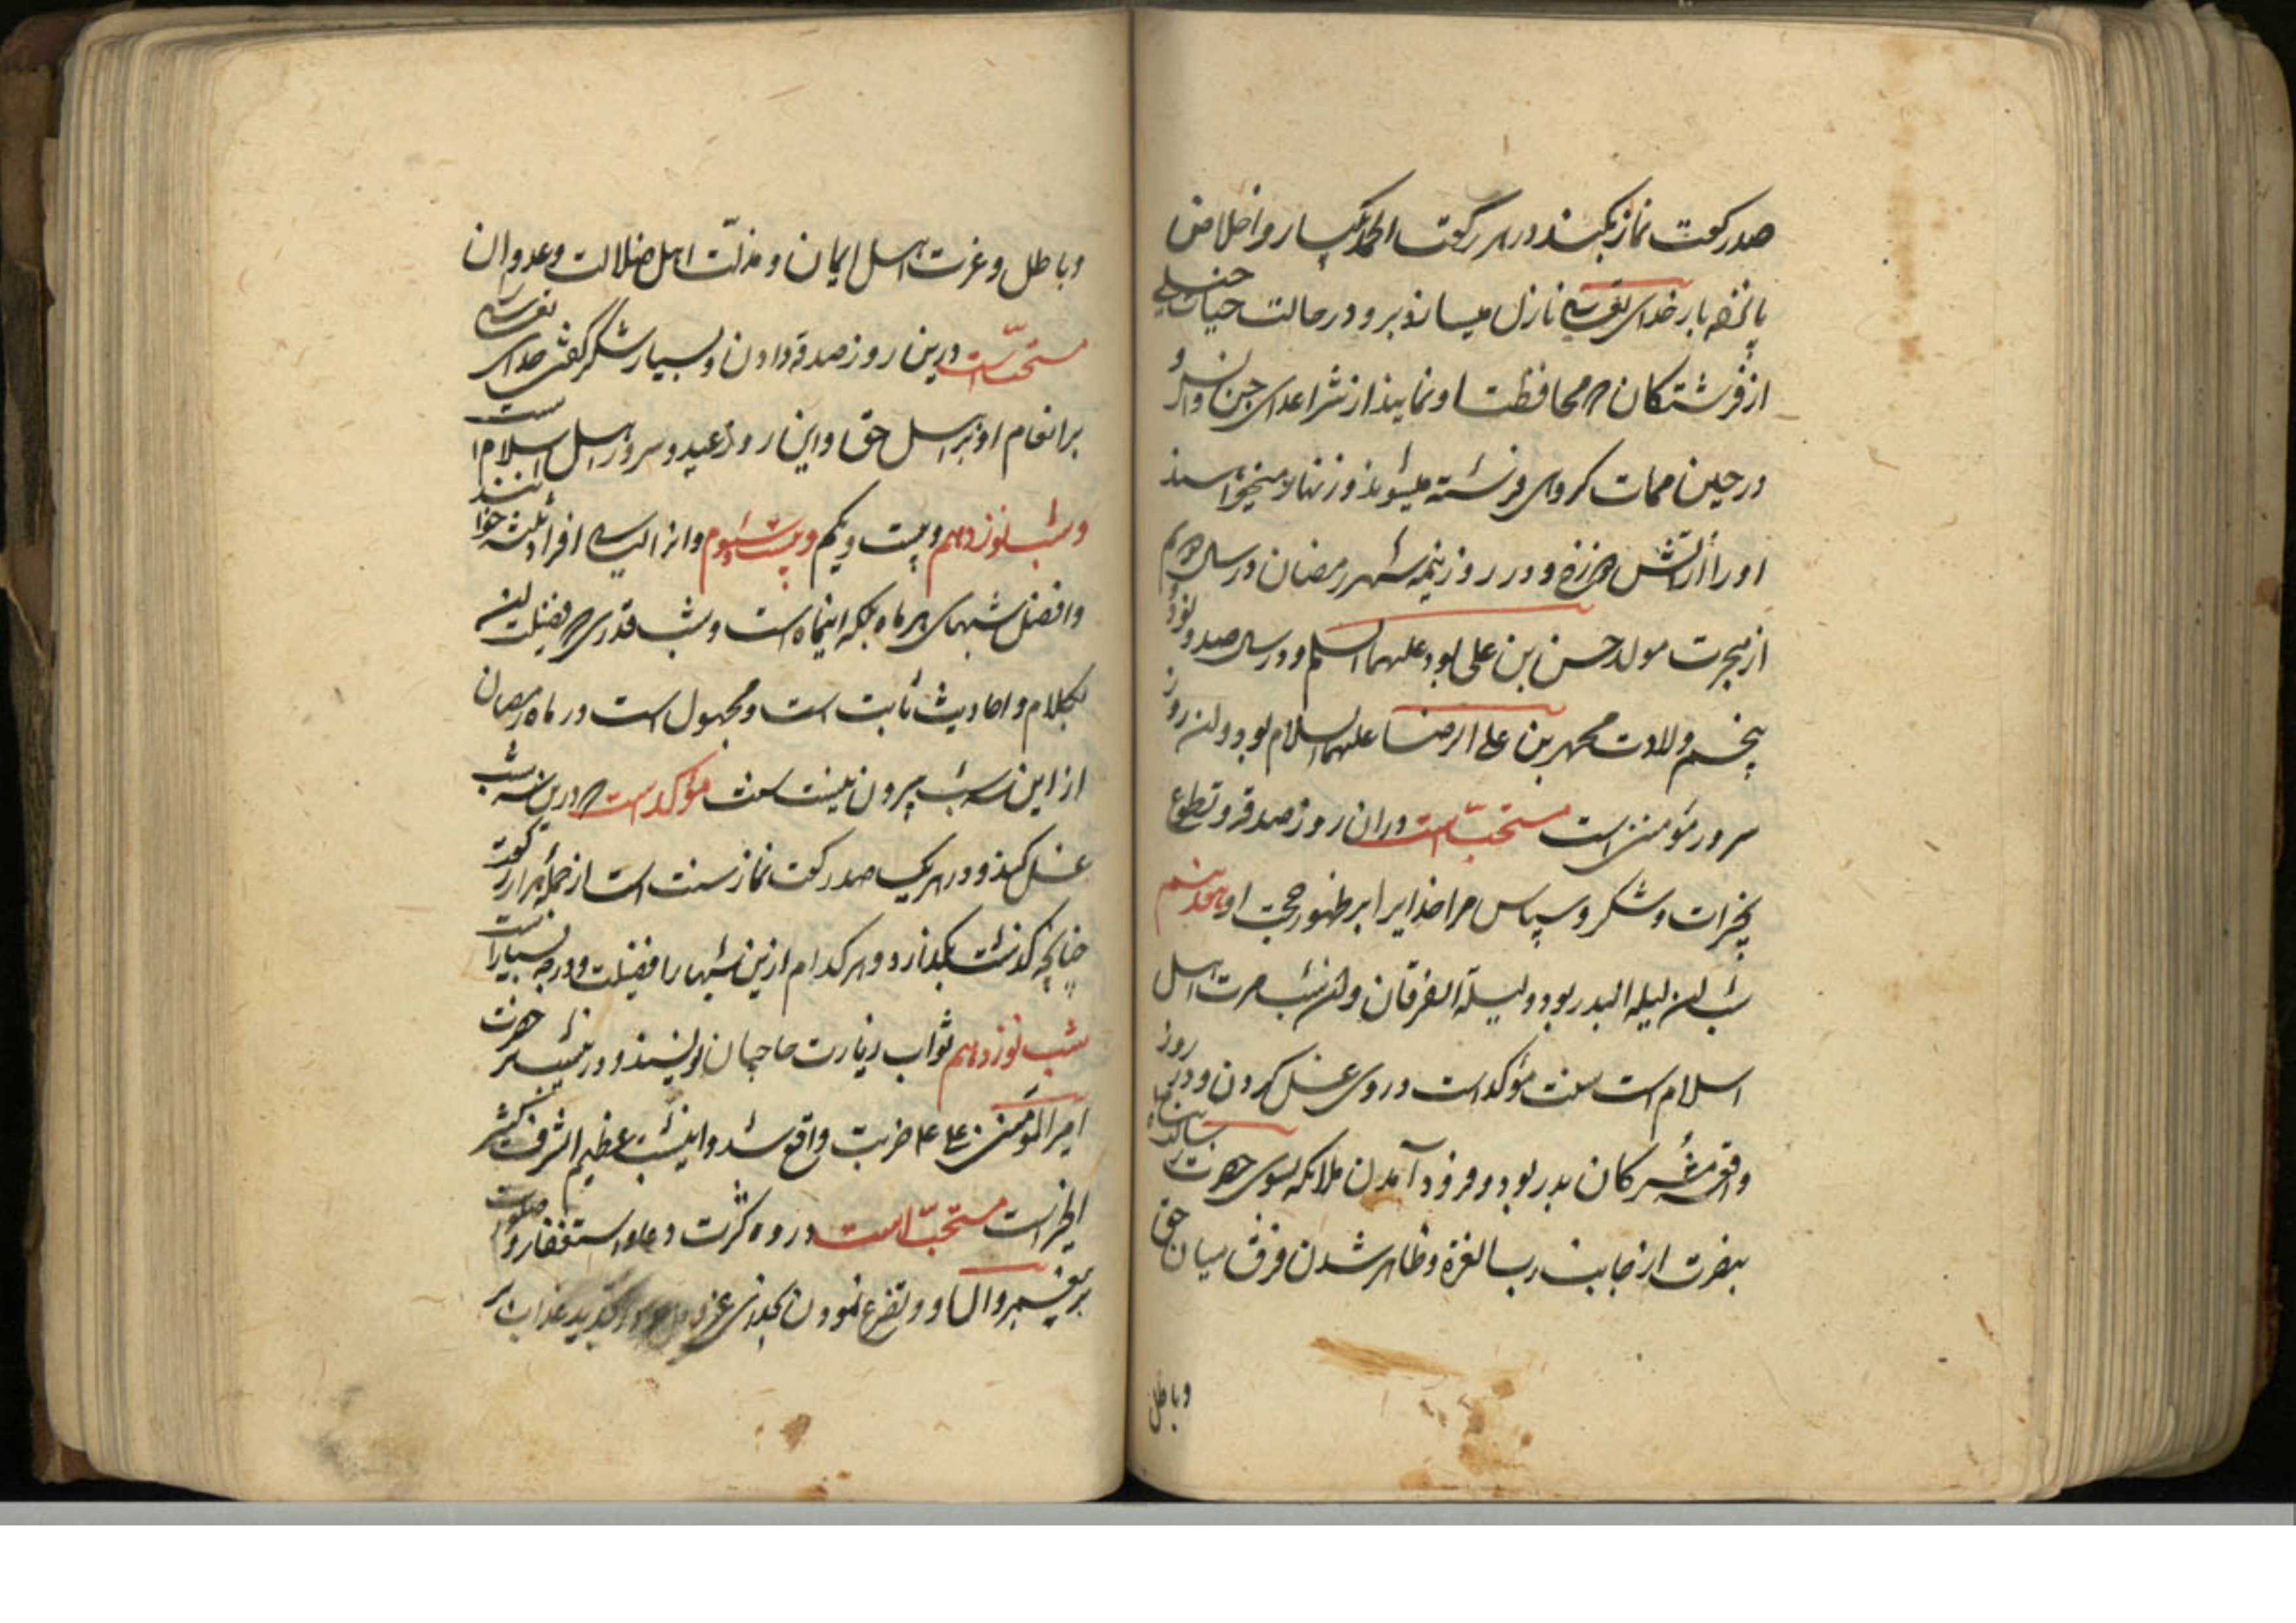 صد رکعت نماز بکند در هر رکعت الحمد یکبار و اخلاص
بار خدای تعالی نازل میسازد برو در حالت حیات
از فرشتکان که محافظت او نمایند از شر اعدای جن و انس و
در حین ممات کروهی فرشته
او را از آتش دوزخ و در روز نیمه شهر رمضان در سال سیم
از هجرت مولد حسن بن علی بود علیهما السلم و در سال صد و نود و
پنجم ولادت محمد بن علی الرضا علیهما السلام بود و این روز
سرور مؤمنین است مستحب است در ان روز صدقه و تطوع
بخیرات و شکر و سپاس مر خدایرا بر ظهور حجت او هفدهم
شب این لیله البدر بود و لیلة الفرقان و این شب مسرت اهل
اسلام است سنت مؤکد است در وی غسل کردن و درین روز
واقعه مشرکان بدر بود و فرود آمدن ملائکه بسوی حضرت رسالت پناه
بنصرت از جانب رب العزة و ظاهر شدن فرق میان حق
و باطل
و باطل و عزت اهل ایمان و مذلت اهل ضلالت و عدوان
مستحب است درین روز صدقه دادن و بسیار شکر کفتن خدای تعالی
بر انعام او بر اهل حق و این روز عید و سرور اهل اسلام است
و شب نوزدهم و بیست و یکم و بیست و سیوم و انرا لیالی افراد ثلثه خوانند
و افضل شبهای هر ماه بلکه اینماه است و شب قدر که فضیلت این
بکلام و احادیث ثابت است و مجهول است در ماه رمضان
از این سه شب بیرون نیست سنت مؤکد است که درین سه شب
غسل کنند و در هر یک صد رکعت نماز سنت است از جمله هزار رکعت
چنانچه کذشت بکذارد و هر کدام ازین شبها را فضیلت و درجه بسیار است
شب نوزدهم ثواب زیارت حاجیان نویسند و درین شب بر حضرت
امیر المؤمنین علی ع ضربت واقع شد و اینشب عظیم الشرف کثیر
الخیر است مستحب است در وه کثرت دعا و استغفار و صلوات
بر پیغمبر و ال او و تضرع نمودن بخدای عز و